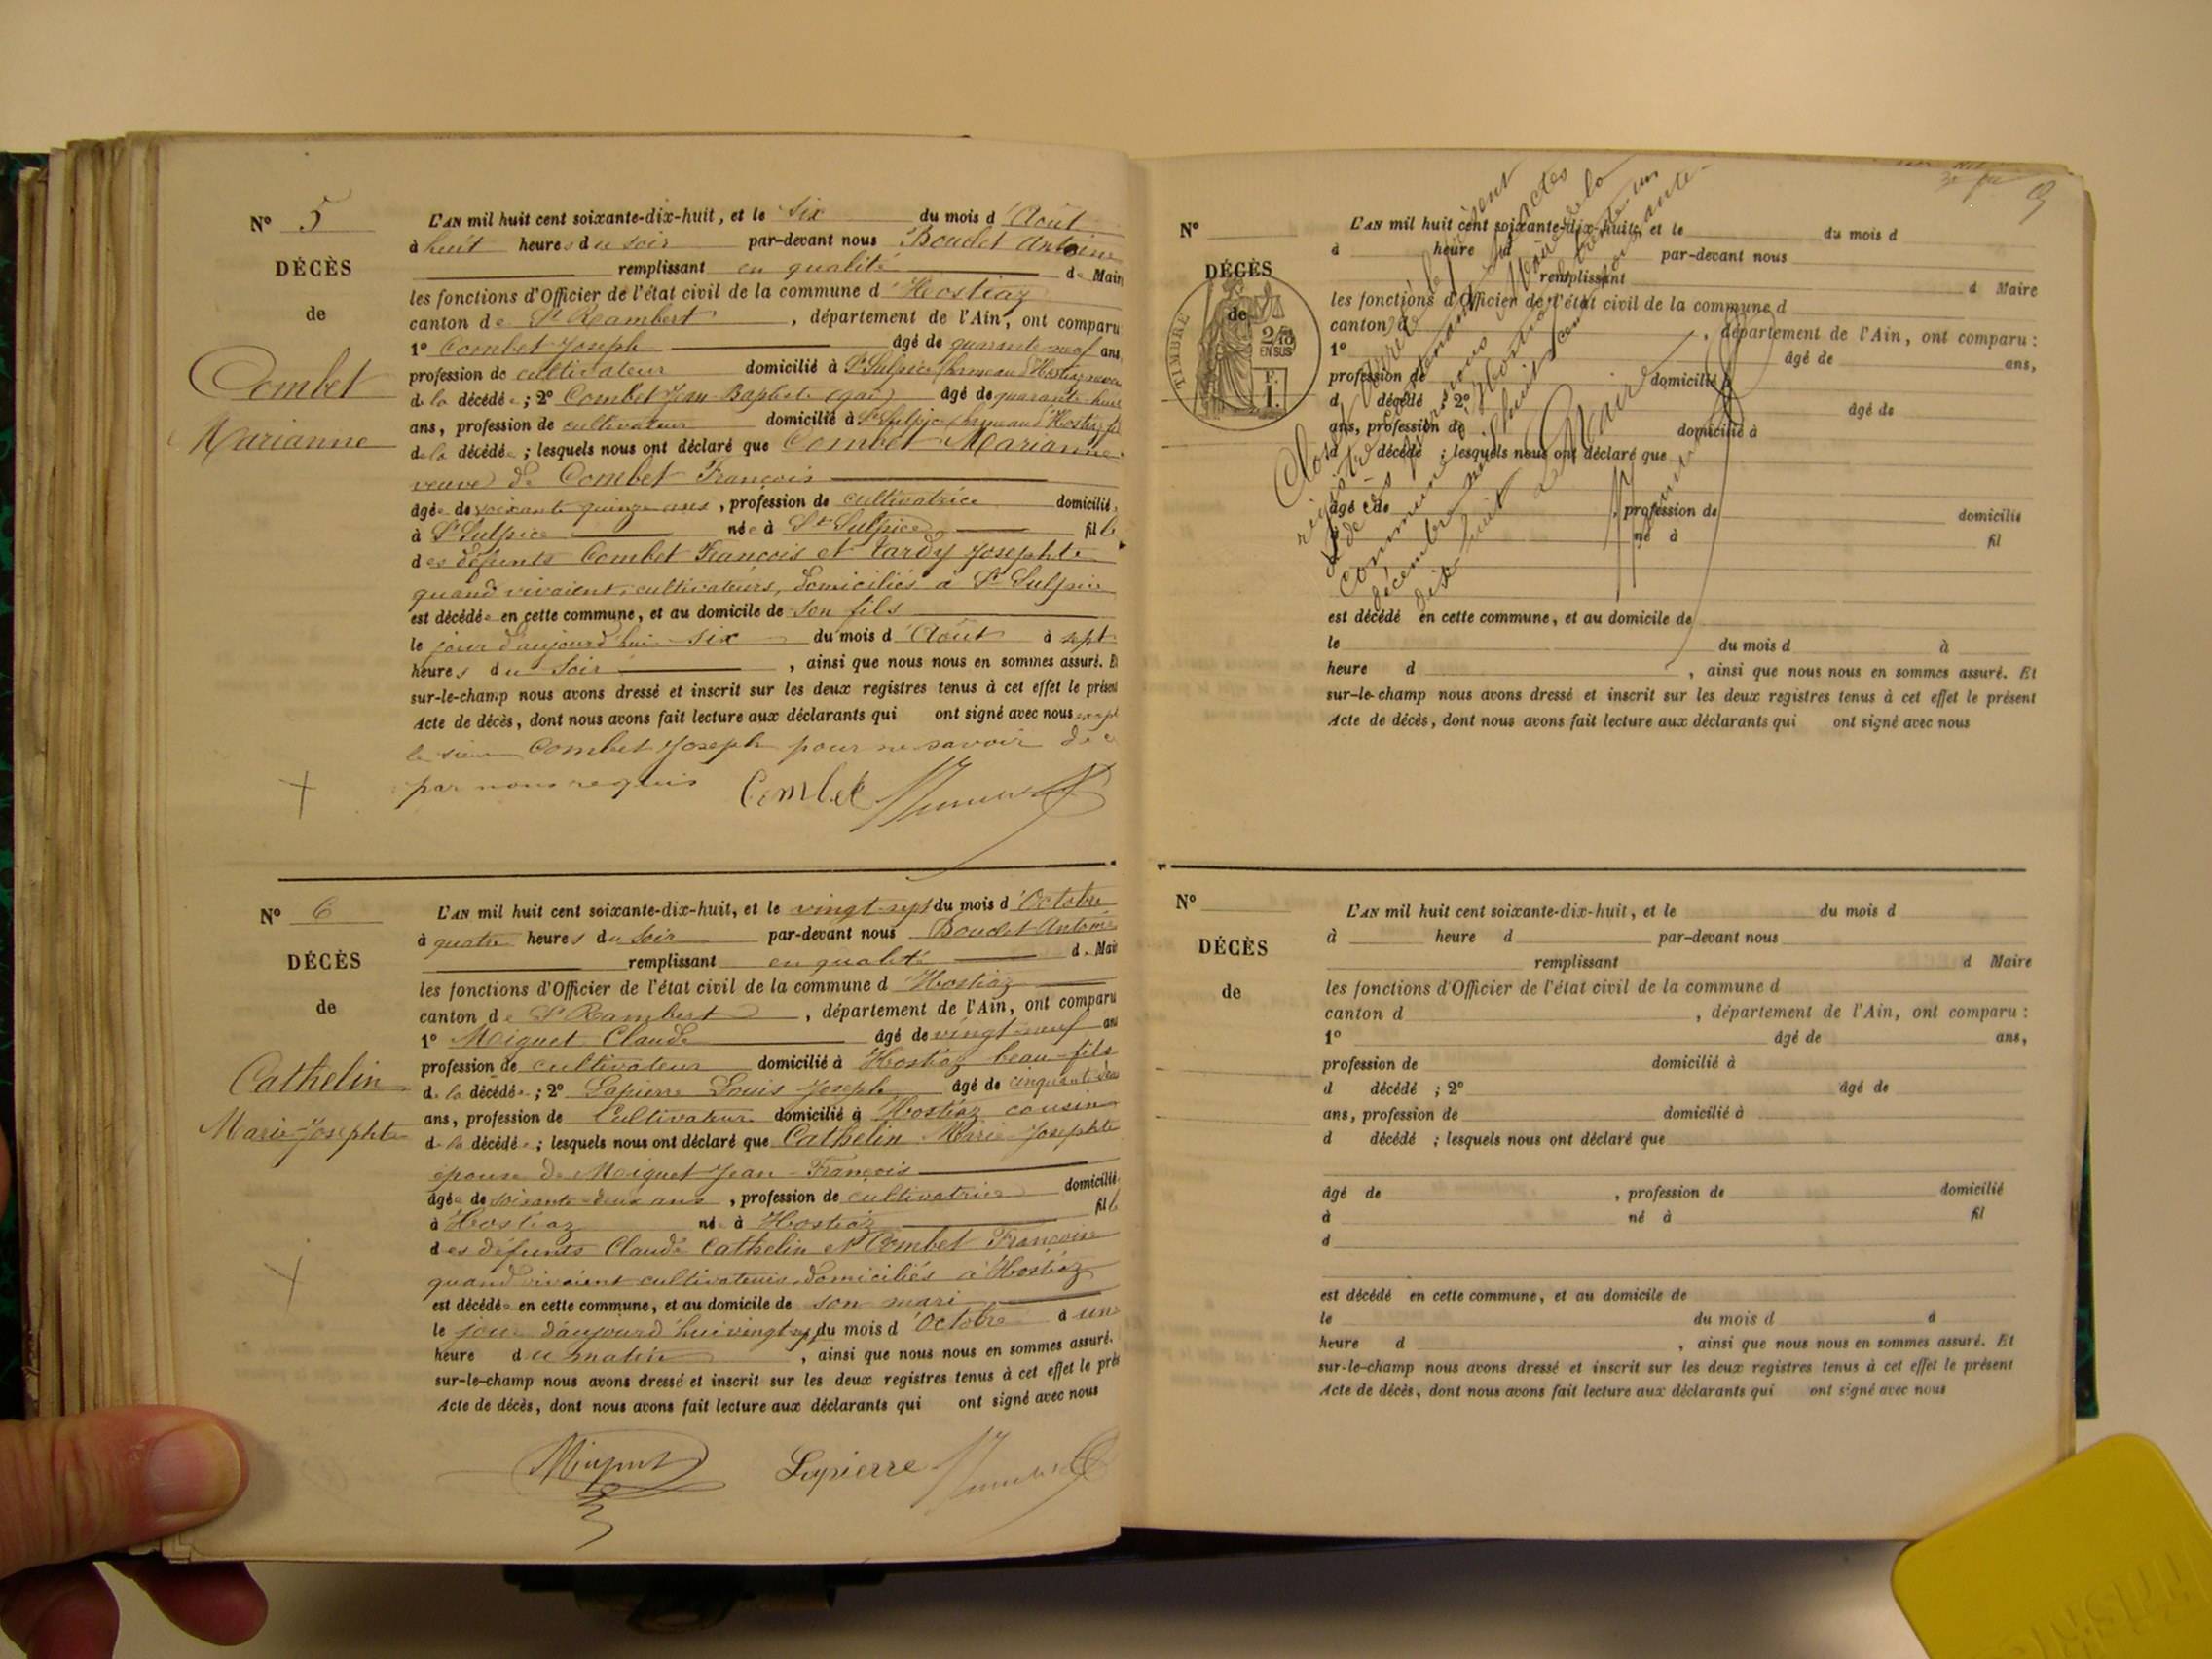 N° 5
DÉCÈS
de
Combet
Marianne
L'AN mil huit cent soixante-dix-huit, et le six du mois d'Août
à huit heures du soir par-devant nous Boudet Antoine
remplissant en qualité de Mair
les fonctions d'Officier de l'état civil de la commune d'Hostiaz
canton de St Rambert, département de l'Ain, ont comparu
1° Combet Joseph âgé de quarante-neuf ans
profession de cultivateur domicilié à St Sulpice (hameau d'Hostiaz)
de la décédée; 2° Combet Jean-Baptiste âgé de quarante-
ans, profession de cultivateur domicilié à St Sulpice (hameau d'Hostiaz)
de la décédée; lesquels nous ont déclaré que Combet Marianne
veuve de Combet François
âgée de soixante quinze ans, profession de cultivatrice domicilié
à St Sulpice née à St Sulpice fille
des défunts Combet François et Tardy Josephte
quand vivaient, cultivateurs, domiciliés à St Sulpice
est décédée en cette commune, et au domicile de son fils
le jour d'aujourd'hui six du mois d'Août à sept
heures du soir, ainsi que nous nous en sommes assuré. Et
sur-le-champ nous avons dressé et inscrit sur les deux registres tenus à cet effet le présent
Acte de décès, dont nous avons fait lecture aux déclarants qui ont signé avec nous
le sieur Combet Joseph pour ne savoir de ce
par nous requis Combet
N° 6
DÉCÈS
de
Cathelin
Marie-Josephte
L'AN mil huit cent soixante-dix-huit, et le vingt-sept du mois d'Octobre
à quatre heures du soir par-devant nous Boudet Antoine
remplissant en qualité de Mai
les fonctions d'Officier de l'état civil de la commune d'Hostiaz
canton de St Rambert, département de l'Ain, ont comparu
1° Moiguet Claude âgé de vingt-neuf ans
profession de cultivateur domicilié à Hostiaz beau-fils
de la décédée; 2° Lapierre Louis Joseph âgé de cinquante-
ans, profession de Cultivateur domicilié à Hostiaz cousin
de la décédée; lesquels nous ont déclaré que Cathelin Marie Josephte
épouse de Moiguet Jean-François
âgée de soixante-deux ans, profession de cultivatrice domicilié
à Hostiaz née à Hostiaz fille
des défunts Claude Cathelin et Combet Françoise
quand vivaient cultivateurs, domiciliés à Hostiaz
est décédée en cette commune, et au domicile de son mari
le jour d'aujourd'hui vingt sept du mois d'Octobre à une
heure du matin, ainsi que nous nous en sommes assuré.
sur-le-champ nous avons dressé et inscrit sur les deux registres tenus à cet effet le prés
Acte de décès, dont nous avons fait lecture aux déclarants qui ont signé avec nous
Lapierre
N°
DÉCÈS
de
TIMBRE
EN SUS
L'AN mil huit cent soixante-dix-huit, et le du mois d
à heure d par-devant nous
remplissant d Maire
les fonctions d'Officier de l'état civil de la commune d
canton d, département de l'Ain, ont comparu :
1° âgé de ans,
profession de domicilié à
d décédé ; 2° âgé de
ans, profession de domicilié à
d décédé ; lesquels nous ont déclaré que
âgé de profession de domicilié
né à fil
est décédé en cette commune, et au domicile de
le du mois d à
heure d, ainsi que nous nous en sommes assuré. Et
sur-le-champ nous avons dressé et inscrit sur les deux registres tenus à cet effet le présent
Acte de décès, dont nous avons fait lecture aux déclarants qui ont signé avec nous
Clos
décembre mil huit cent
dix huit
Le Maire
N°
DÉCÈS
de
L'AN mil huit cent soixante-dix-huit, et le du mois d
à heure d par-devant nous
remplissant d Maire
les fonctions d'Officier de l'état civil de la commune d
canton d, département de l'Ain, ont comparu :
1° âgé de ans,
profession de domicilié à
d décédé ; 2° âgé de
ans, profession de domicilié à
d décédé ; lesquels nous ont déclaré que
âgé de, profession de domicilié
à né à fil
d
est décédé en cette commune, et au domicile de
le du mois d à
heure d, ainsi que nous nous en sommes assuré. Et
sur-le-champ nous avons dressé et inscrit sur les deux registres tenus à cet effet le présent
Acte de décès, dont nous avons fait lecture aux déclarants qui ont signé avec nous